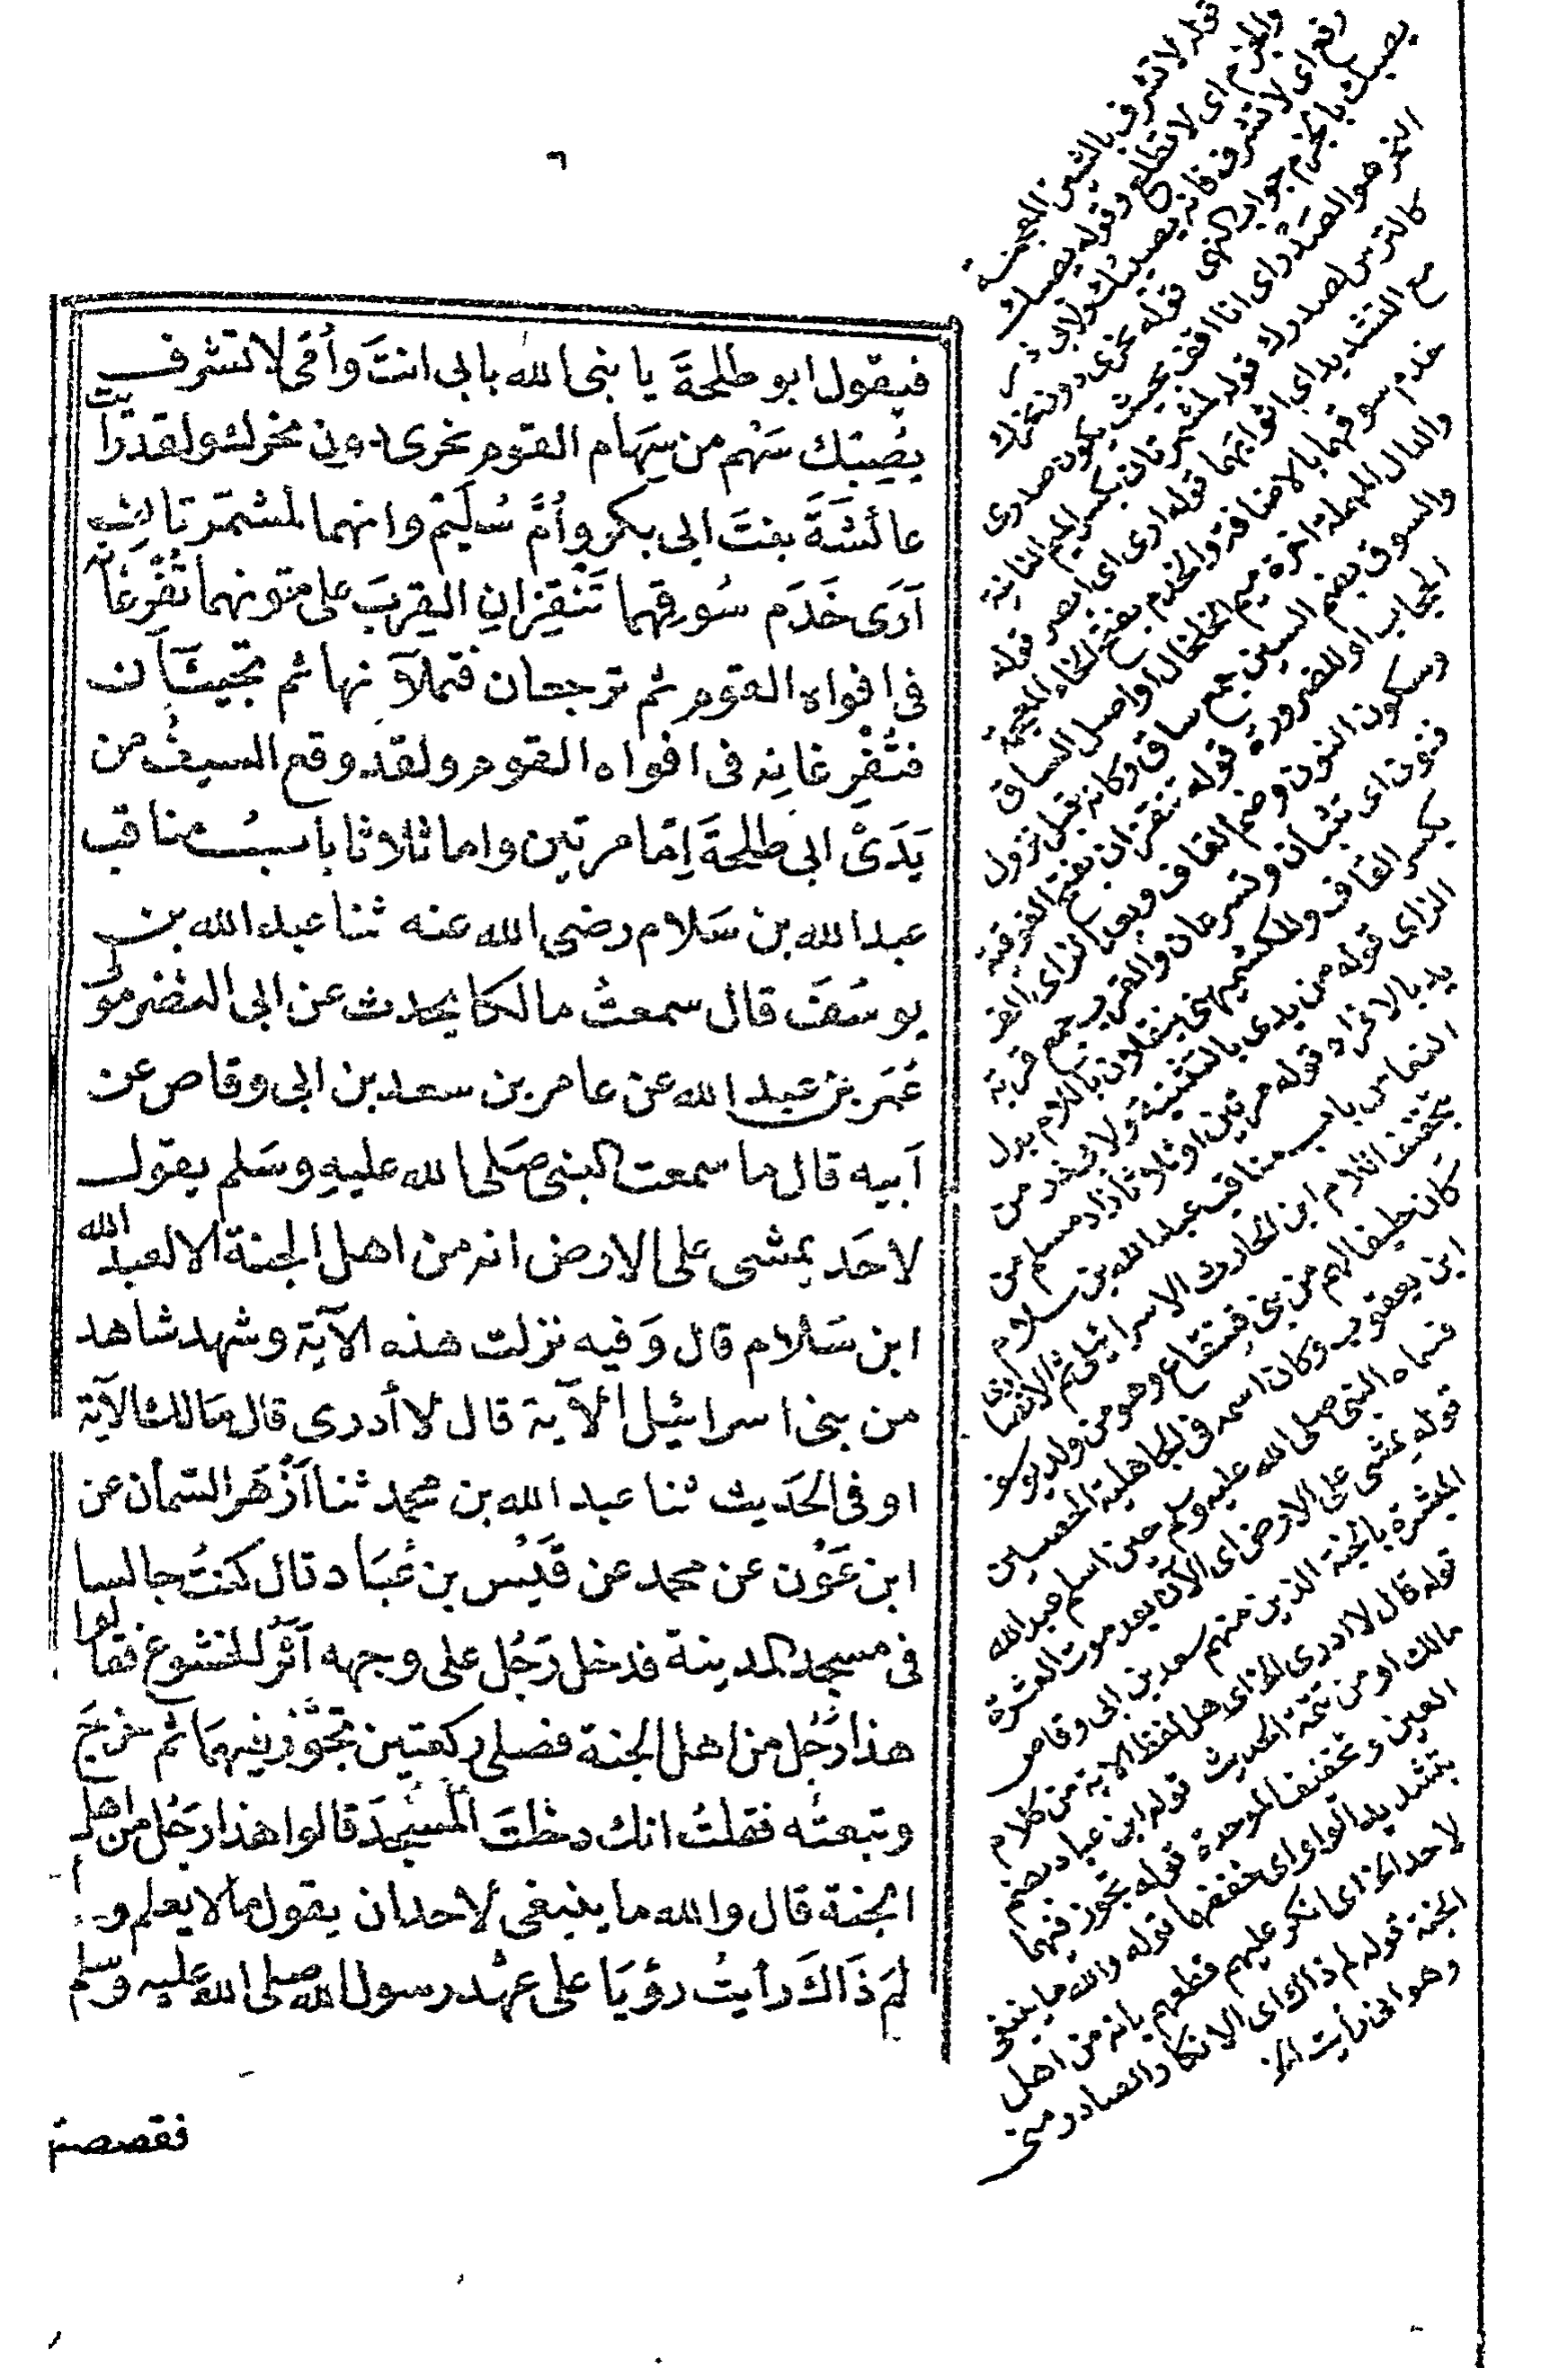 ٦
فيقول ابو طلحةَ يا نبى الله بابى انتَ وأمّى لا تشرف
يُصِبْك سَهْم من سِهَام القوم نحرى دون نحرك ولقد رأيت
عائشَةَ بنتَ ابى بكر وأمَّ سُلَيْم وانهما لمشمّرتان
أرَى خَدَم سُوقِهما تَنْقِزانِ القِربَ على متونهما تُفْرِغَانه
فى افواه القوم ثم ترجعان فتملآنها ثم تجيئان
فتُفْرِغانِه فى افواه القوم ولقد وقع السيفُ من
يَدَىْ ابى طلحةَ اِمّا مرتين واما ثلاثا باب مناقب
عبد الله بن سَلام رضى الله عنه ثنا عبد الله بن
يوسُفَ قال سمعتُ مالكا يحدث عن ابى النضر مولى
عُمَر بن عبيد الله عن عامر بن سعد بن ابى وقاص عن
أبيه قال ما سمعت النبى صَلى الله عليهِ وسَلم يقول
لاحَد يمشى على الارض انه من اهل الجنة الا لعبد الله
ابن سَلام قال وَفيه نزلت هذه الآية وشهد شاهد
من بنى اسرائيل الآية قال لا أدرى قال مَالك الآية
او فى الحَديث ثنا عبد الله بن محمد ثنا أزْهَر السّمان عن
ابن عَوْن عن محمد عن قَيْس بن عُبَاد قال كنتُ جالسا
فى مسجد المدينة فدخل رَجُل على وجهه أثَرُ الخشوع فقالوا
هذا رَجُل من اهل الجنة فصلى ركعتين تجَوَّز فيهمَا ثم خرجَ
وتبعتُه فقلتُ انك دخلتَ المسْجدَ قالوا هذا رَجُل من اهل
الجنة قال والله ما ينبغى لاحد ان يقول ما لا يعلم و
لِمَ ذَاكَ رأيتُ رؤيَا على عهْد رسول الله صلى الله عليه وسلم
فقصصت
قوله لا تشرف بالشين المعجمة
والجزم اى لا تطلع وقوله يصبك
رفع اى لا تشرف فانه يصيبك ولابى ذر
يصبك بالجزم جواب النهى قوله نحرى دون نحرك
النحر هو الصَدْر اى انا اقف بحيث يكون صدرى
كالترس لصدرك قوله لمشمرتان بكسر الميم الثانية
مع التشديد اى اثوابهما قوله ارى اى ابصر قوله
خدم سوقهما بالاضافة والخدم بفتح الخاء المعجمة
والدال المهملة اخره ميم الخلخال او اصل الساق
والسوق بضم السين جمع ساق وكانه قبل نزول
الحجاب او للضرورة قوله تنقزان بفتح الفوقية
وسكون النون وضم القاف وبعد الزاى الف
فنون اى تثبان وتسرعان والقرب جمع قربة
بكسر القاف وللكشميهنى تنقلان باللام بدل
الزاى قوله من يدى بالتثنية ولابى ذر من
يد بالافراد قوله مرتين او ثلاثا زاد مسلم من
النعاس باب مناقب عبد الله بن سلام
بتخفيف اللام ابن الحارث الاسرائيلى ثم الانصارى
كان حليفا لهم من بنى قينقاع وهو من ولد يوسف
ابن يعقوب وكان اسمه فى الجاهلية الحصين
فسماه النبى صلى الله عليه وسلم حين اسلم عبد الله
قوله يمشى على الارض اى الآن بعد موت العشرة
المبشرة بالجنة الذين منهم سعد بن ابى وقاص
قوله قال لا ادرى الخ اى هل لفظ الاية من كلام
مالك او من تتمة الحديث قوله ابن عباد بضم
العين وتخفيف الموحدة قوله تجوز فيهما
بتشديد الواو اى خففهما قوله والله ما ينبغى
لاحد الخ اى انكر عليهم قطعهم بانه من اهل
الجنة قوله لم ذاك اى الانكار الصادر منى
وهو انى رأيت الخ